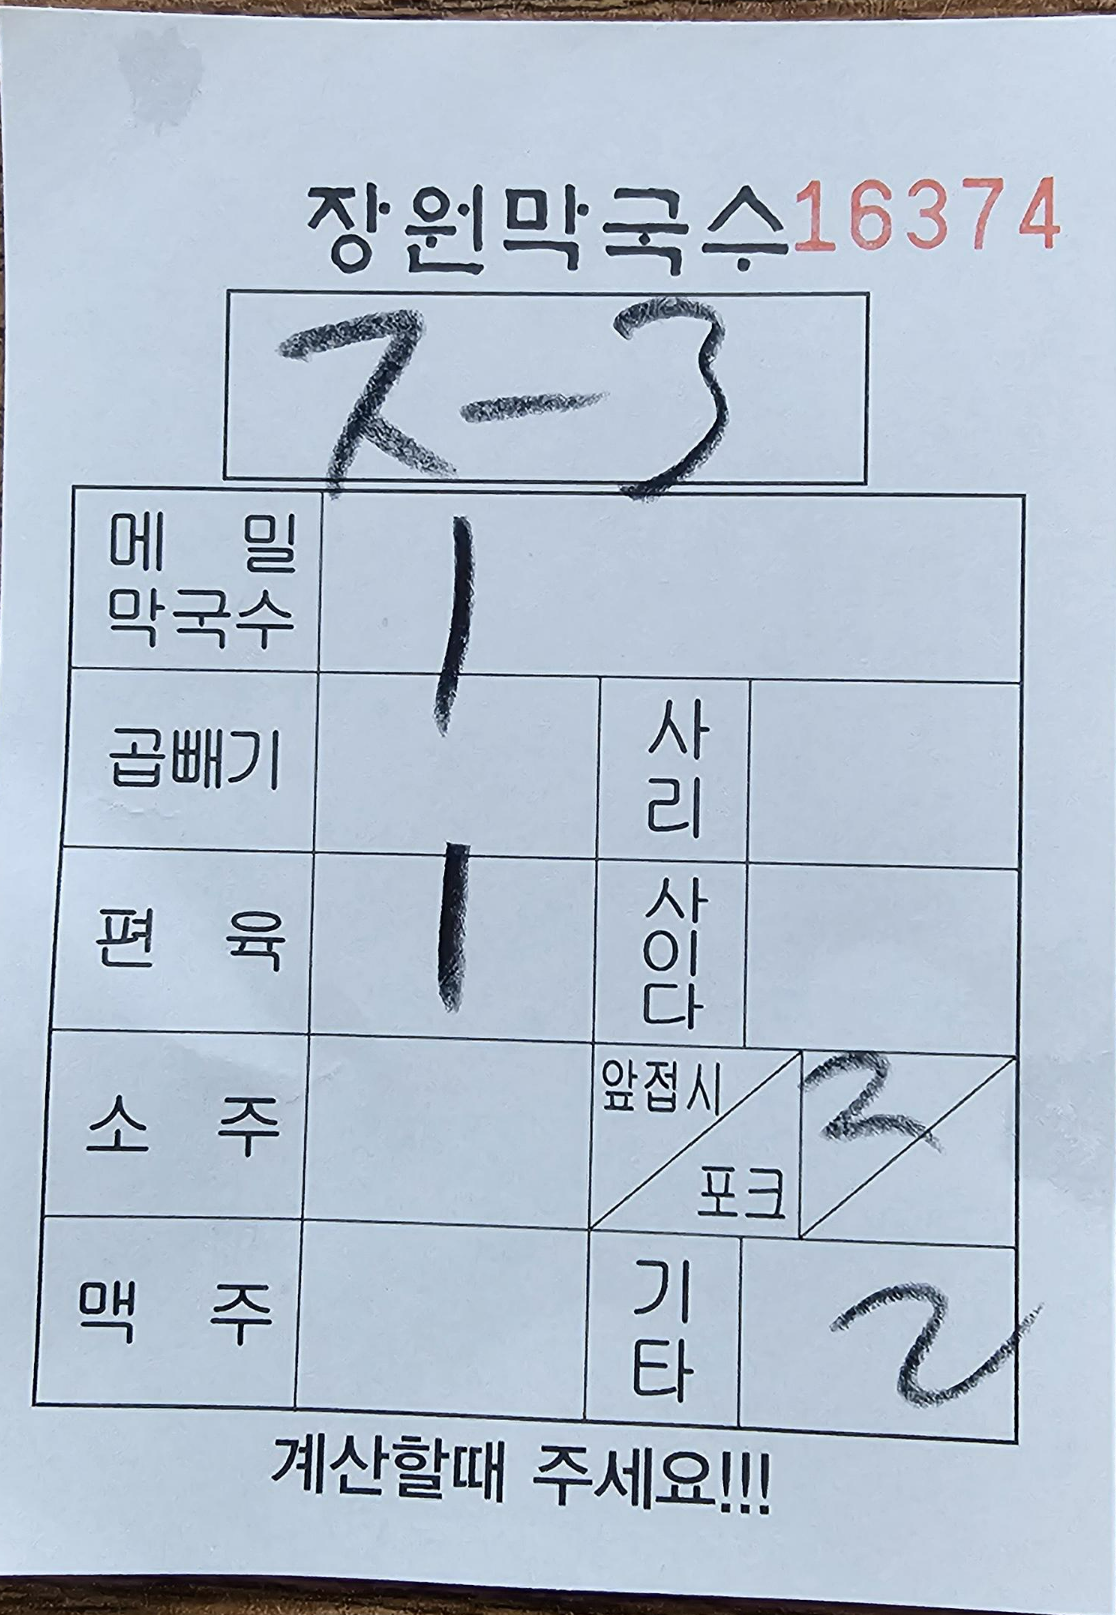 장원막국수 16374
ㅈ-3
메 밀
막국수 1
곱빼기 사리
편 육 1 사이다
소 주 앞접시 2
포크
맥 주 기타 2
계산할때 주세요!!!